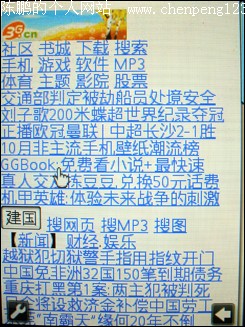 陈鹏的个人网站 www.chenpeng123
3G.cn
社区 书城 下载 搜索
手机 游戏 软件 MP3
体育 主题 影院 股票
交通部判定被劫船员处境安全
刘子歌200米蝶超世界纪录夺冠
正播欧冠曼联|中超长沙2-1胜
10月非主流手机壁纸潮流榜
GGBook:免费看小说+最快速
真人交友拣豆豆,兑换50元话费
机甲英雄:体验未来战争的刺激
建国
搜网页 搜MP3 搜图
【新闻】 财经.娱乐
越狱犯切狱警手指用指纹开门
中国免非洲32国150笔到期债务
重庆打黑第1案:两主犯被判死
将设救济金补偿中国劳工
南霸天 缘何20年不倒